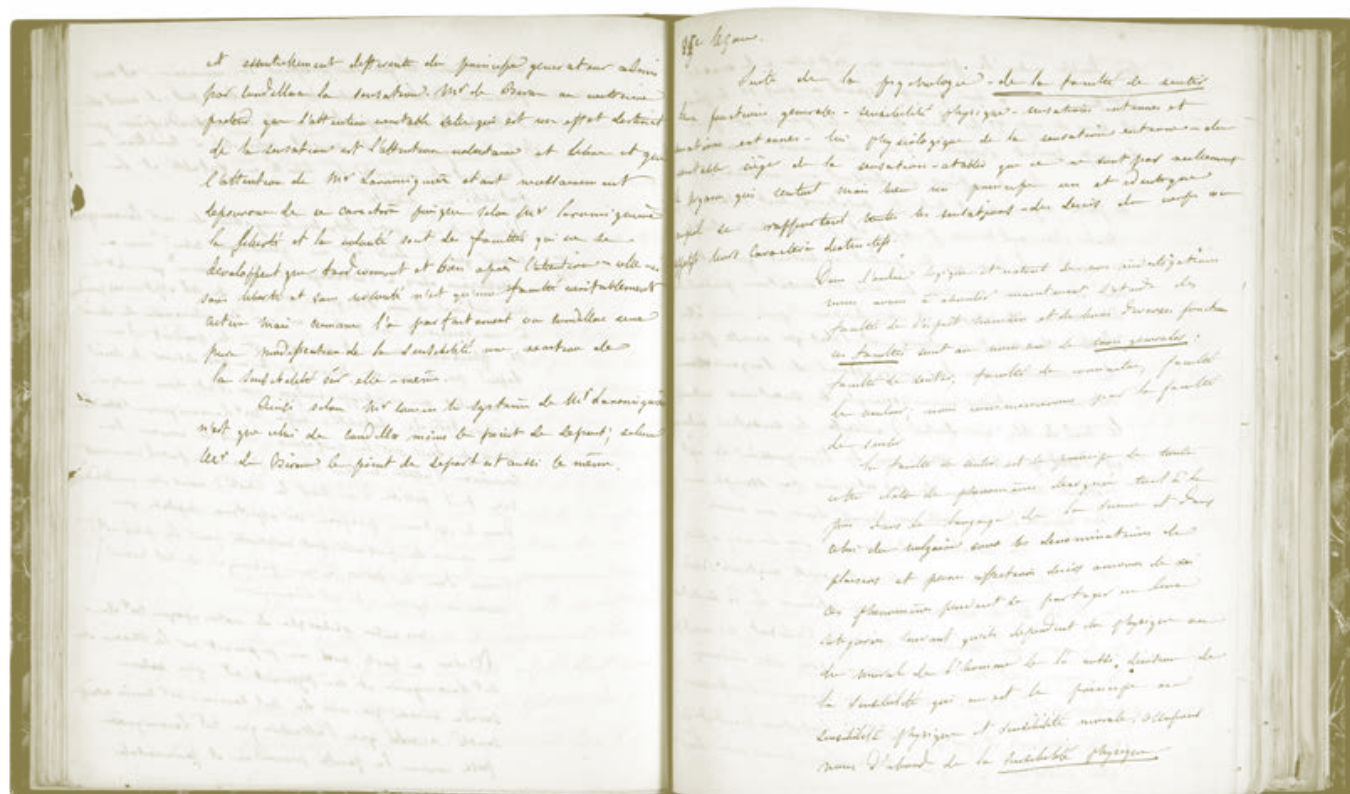 et essentiellement differente du principe generateur admis
par Condillac la sensation. Mr de Biran au contraire
pretend que l'attention veritable celle qui est un effet distinct
de la sensation est l'attention volontaire et libre et que
l'attention de Mr Laromiguière etant necessairement
depourvue de ce caractère puisque selon Mr Laromiguière
la liberté et la volonté sont des facultés qui ne se
developpent que tardivement et bien après l'attention - elle
sans liberté et sans volonté n'est qu'une faculté veritablement
active mais comme l'a parfaitement vu Condillac une
pure modification de la sensibilité une reaction de
la sensibilité sur elle-même.
Ainsi selon Mr Cousin le système de Mr Laromiguière
n'est que celui de Condillac moins le point de depart; selon
Mr de Biran le point de depart est aussi le même.
leçon.
Suite de la psychologie - de la faculté de sentir
fonctions generales - sensibilité physique - sensations internes et
externes - loi physiologique de la sensation externe - du
veritable siège de la sensation - etablir que ce ne sont pas seulement
organes qui sentent mais bien un principe un et identique
auquel se rapportent toutes les sensations - des desirs du corps
leurs caractères distinctifs.
Dans l'ordre logique et naturel de nos investigations
nous avons à aborder maintenant l'étude des
facultés de l'esprit humain et de leurs diverses fonctions
les facultés sont au nombre de trois generales:
faculté de sentir, faculté de connaitre, faculté
de vouloir; nous commencerons par la faculté
de sentir
La faculté de sentir est le principe de toute
cette classe de phenomènes designés tout à la
fois dans le langage de la science et dans
celui du vulgaire sous les denominations de
plaisirs et peines affections desirs amour de soi
ces phenomènes peuvent se partager en deux
categories suivant qu'ils dependent du physique ou
du moral de l'homme de là cette division de
la sensibilité qui en est le principe en
sensibilité physique et sensibilité morale, occupons
nous d'abord de la sensibilité physique